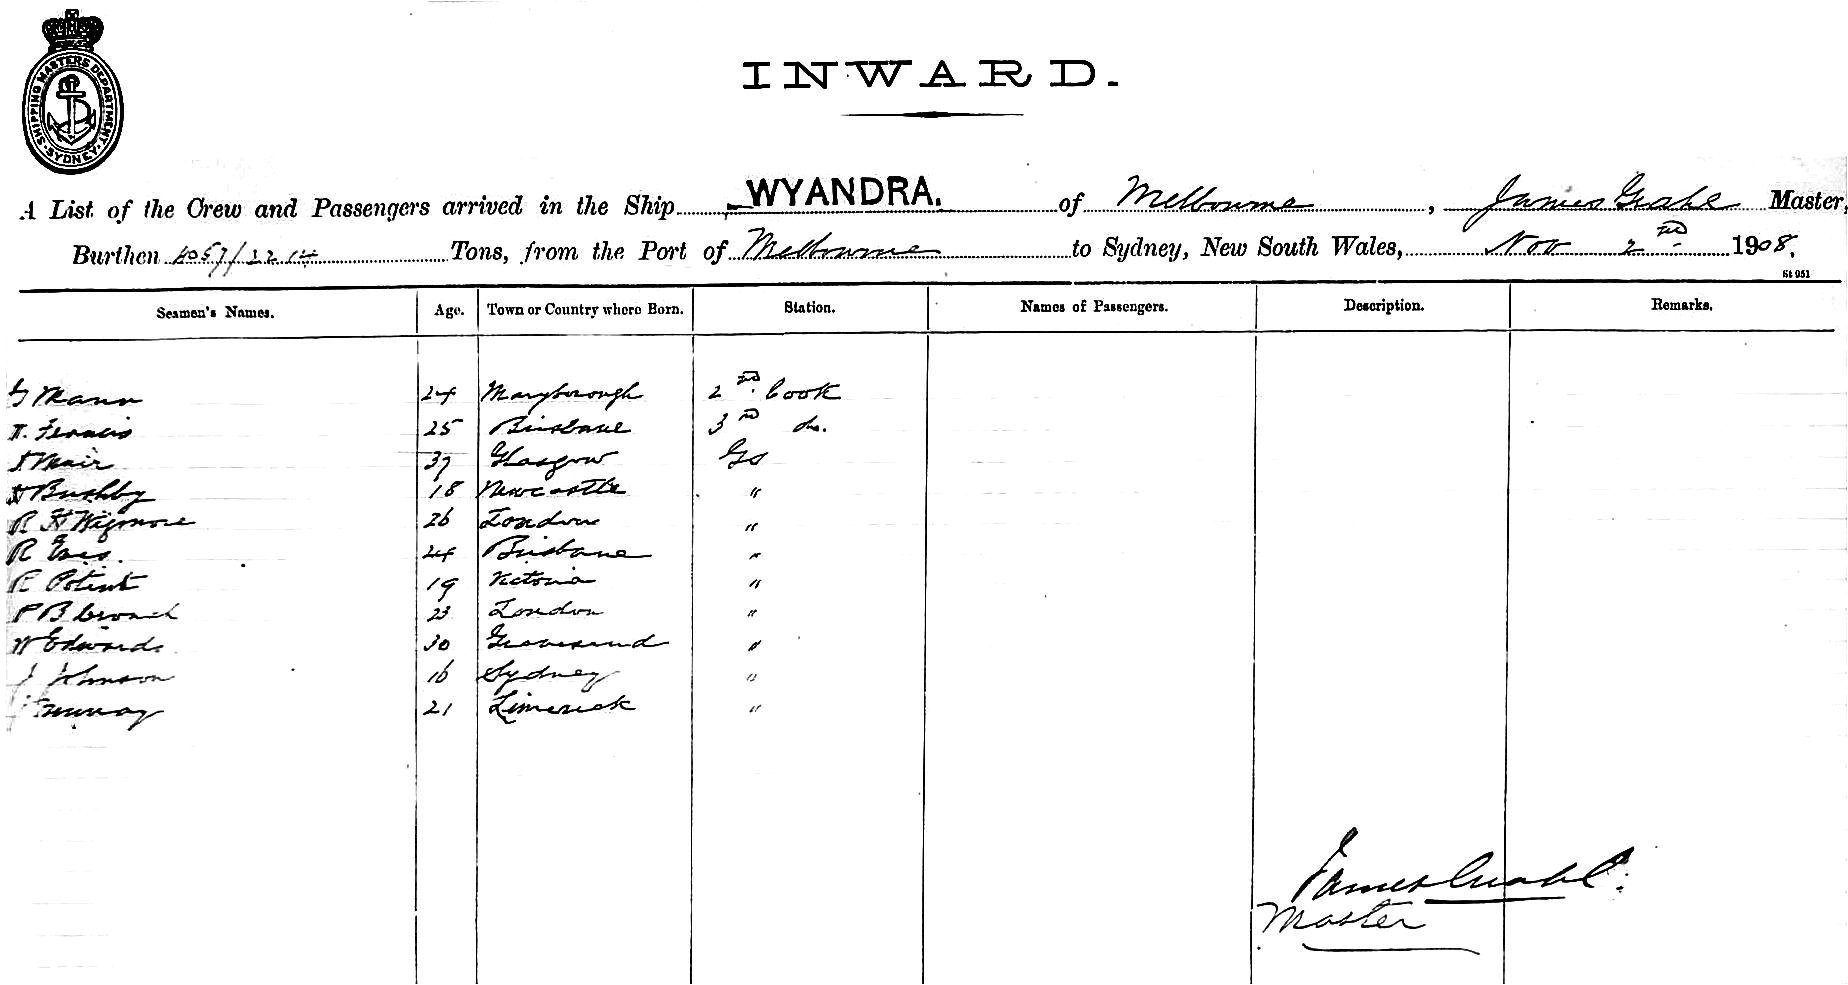 SHIPPING MASTERS DEPARTMENT
SYDNEY
INWARD.
A List of the Crew and Passengers arrived in the Ship WYANDRA. of Melbourne, James Grahl Master,
Burthen 4057/2214 Tons, from the Port of Melbourne to Sydney, New South Wales, Nov 2nd 1908.
St 951
Seamen's Names. Age. Town or Country where Born. Station. Names of Passengers. Description. Remarks.
G Mann 24 Maryborough 2nd Cook
Francis 25 Brisbane 3rd do.
Mair 37 Glasgow GS
H Bushby 18 Newcastle "
R H Wigmore 26 London "
R 24 Brisbane "
R Potent 19 Victoria "
P B 23 London "
W Edwards 30 Gravesend "
J Johnson 16 Sydney "
Murray 21 Limerick "
James Grahl
Master